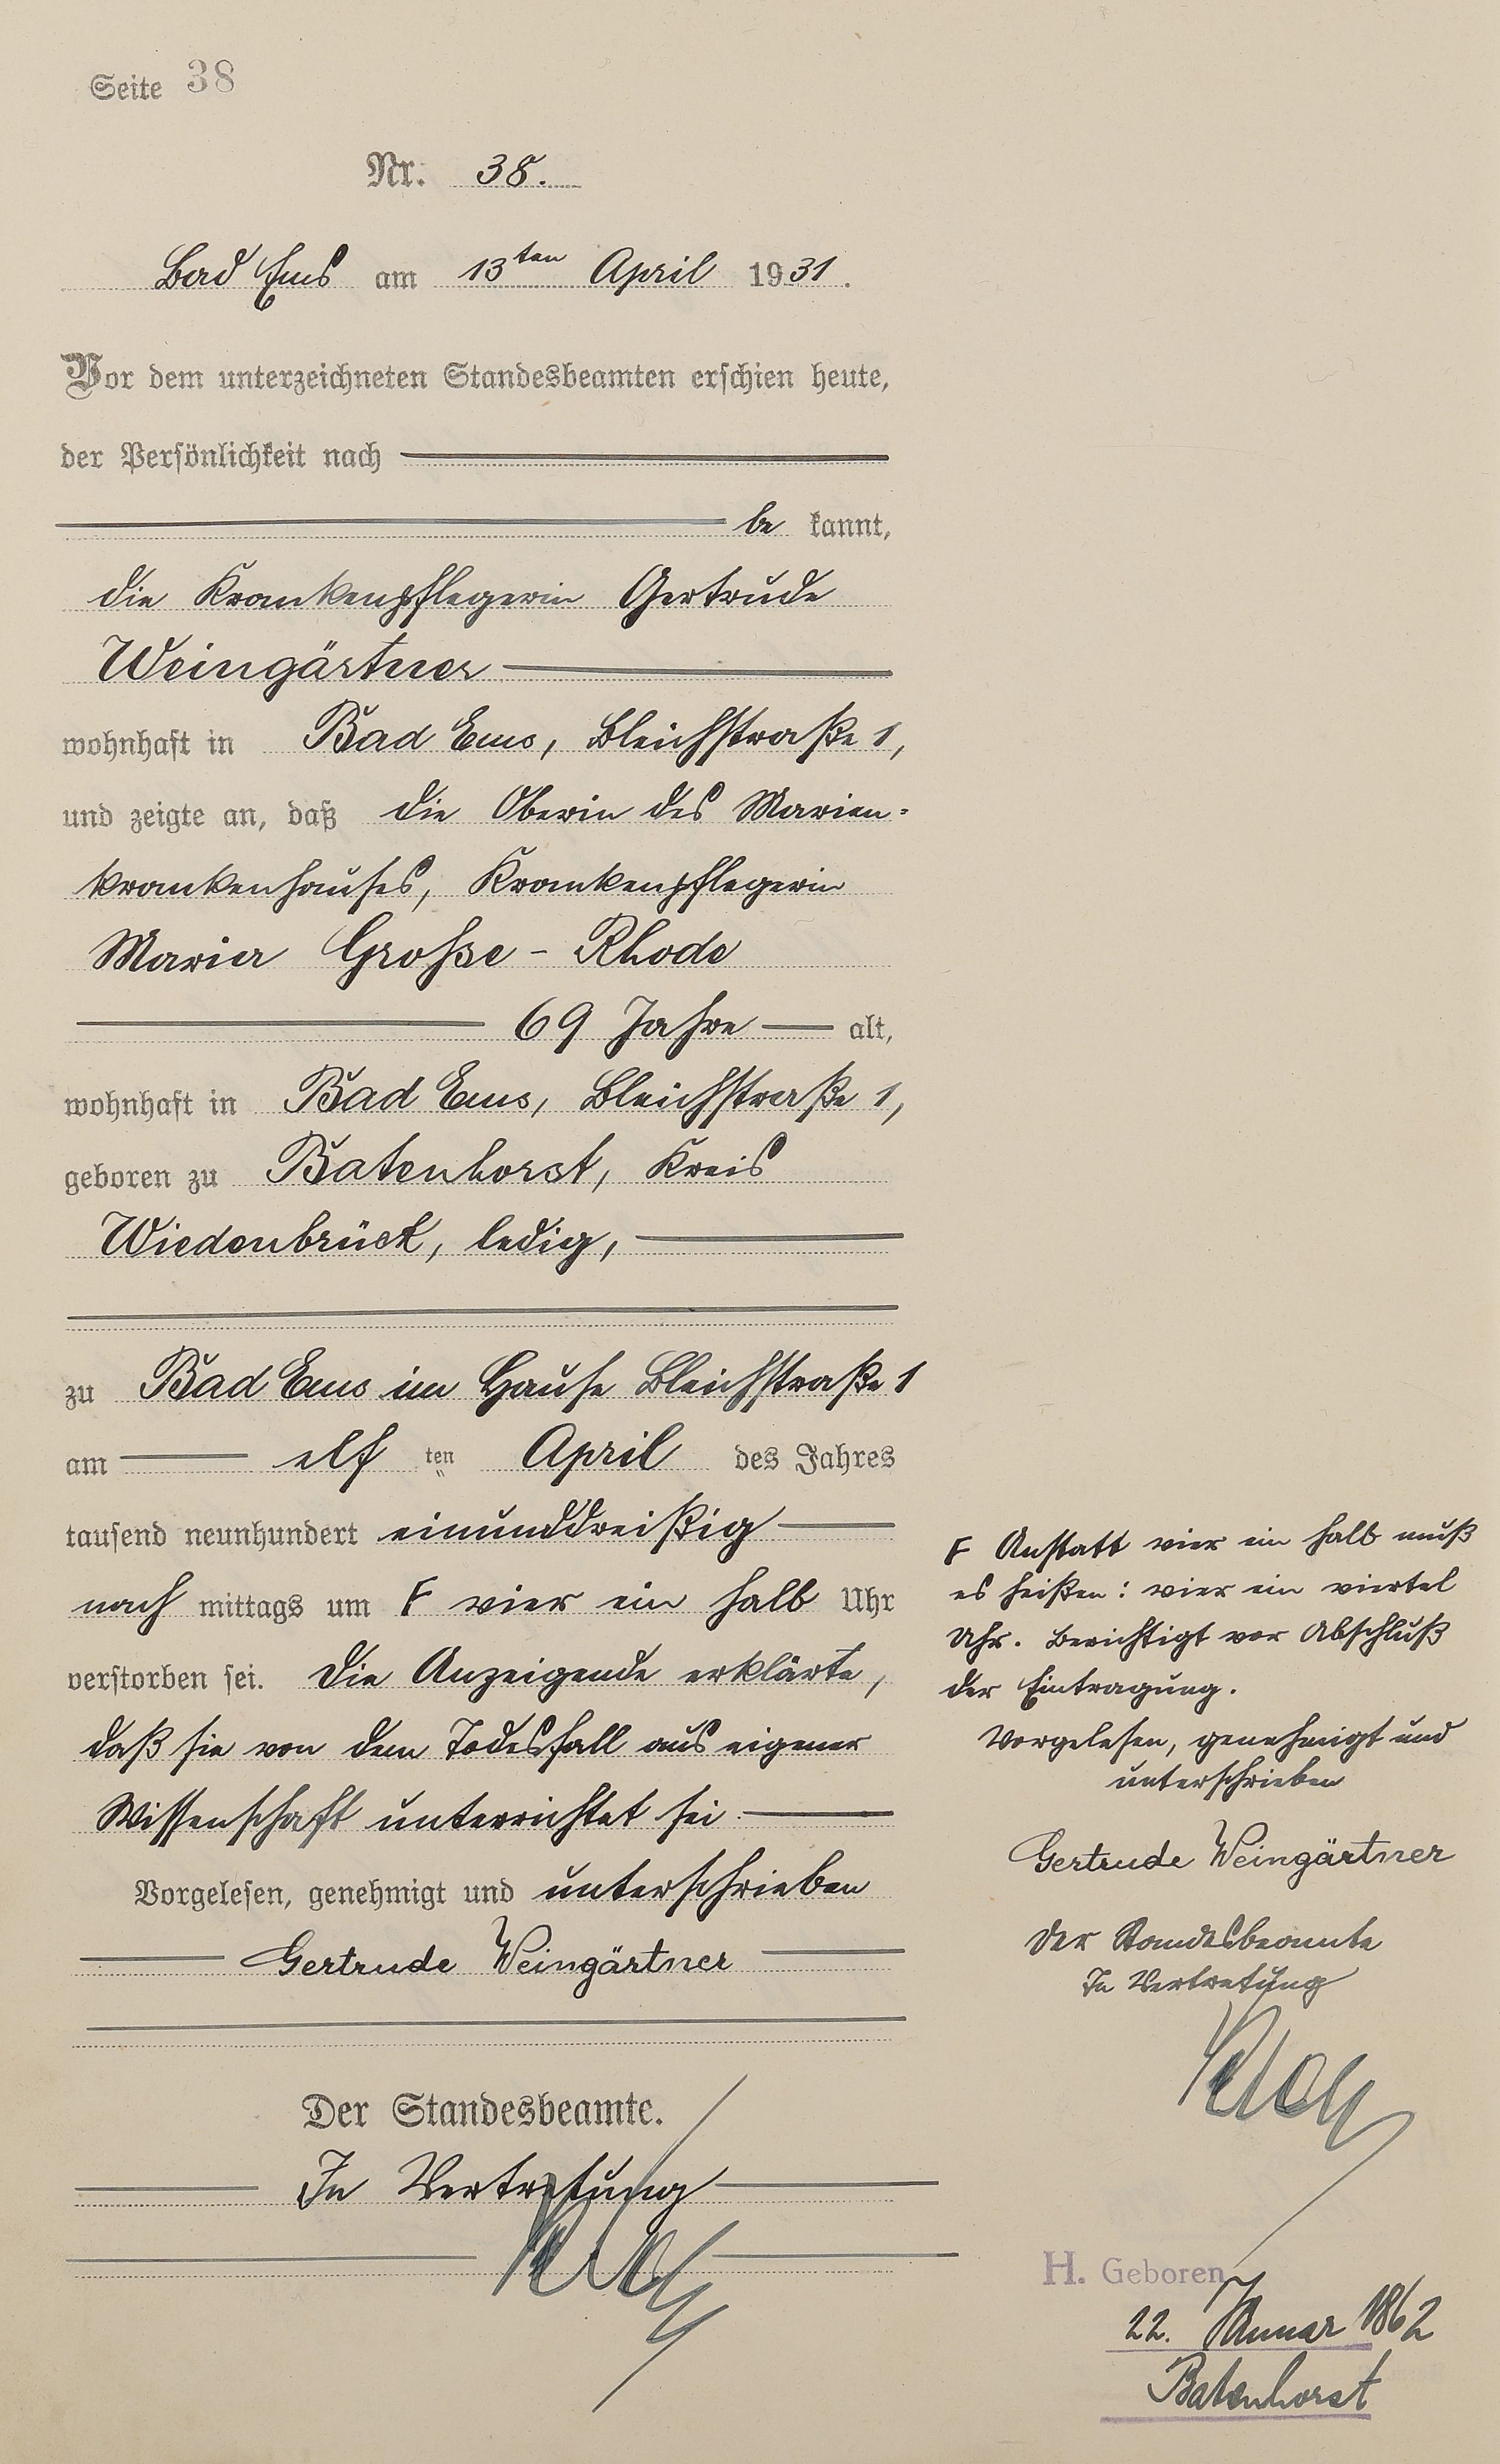 Seite 38
Nr. 38.
Bad Ems am 13ten April 1931.
Vor dem unterzeichneten Standesbeamten erschien heute,
der Persönlichkeit nach
be kannt,
die Krankenpflegerin Gertrude
Weingärtner
wohnhaft in Bad Ems, Bleichstraße 1,
und zeigte an, daß die Oberin des Marien-
krankenhauses, Krankenpflegerin
Maria Große-Rhode
69 Jahre alt,
wohnhaft in Bad Ems, Bleichstraße 1,
geboren zu Batenhorst, Kreis
Wiedenbrück, ledig,
zu Bad Ems im Hause Bleichstraße 1
am elf ten April des Jahres
tausend neunhundert einunddreißig
nach mittags um F vier ein halb Uhr
verstorben sei. Die Anzeigende erklärte,
daß sie von dem Todesfall aus eigener
Wissenschaft unterrichtet sei
Vorgelesen, genehmigt und unterschrieben
Gertrude Weingärtner
Der Standesbeamte.
In Vertretung
F Anstatt vier ein halb muß
es heißen: vier ein viertel
Uhr. Berichtigt vor Abschluß
der Eintragung.
Vorgelesen, genehmigt und
unterschrieben
Gertrude Weingärtner
Der Standesbeamte
In Vertretung
H. Geboren
22. Januar 1862
Batenhorst